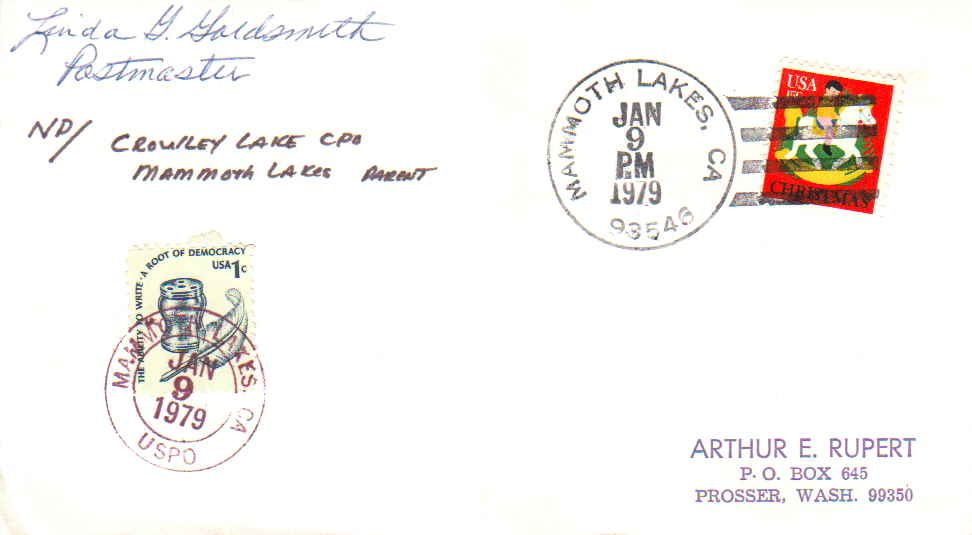 Linda G. Goldsmith
Postmaster
ND/ CROWLEY LAKE CPO
MAMMOTH LAKES PARENT
MAMMOTH LAKES, CA
JAN
9
PM
1979
93546
USA
15c
CHRISTMAS
THE ABILITY TO WRITE · A ROOT OF DEMOCRACY
USA 1c
MAMMOTH LAKES, CA
JAN
9
1979
USPO
ARTHUR E. RUPERT
P. O. BOX 645
PROSSER, WASH. 99350